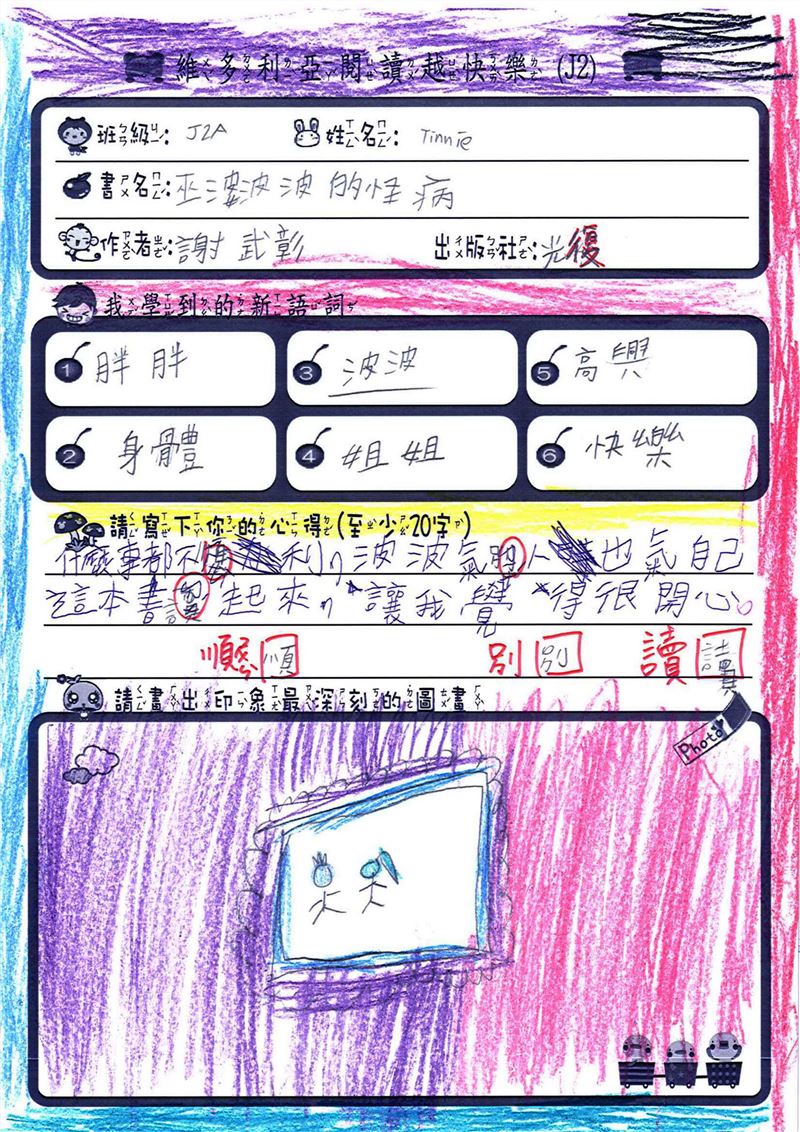 維多利亞閱讀越快樂 (J2)
班級: J2A 姓名: Tinnie
書名: 巫婆波波的怪病
作者: 謝武彰 出版社: 光復
我學到的新語詞
1 胖胖 3 波波 5 高興
2 身體 4 姐姐 6 快樂
請寫下你的心得(至少20字)
什麼事都不順利,波波氣別人也氣自己
這本書讀起來,讓我覺得很開心。
順 順 別 別 讀 讀
請畫出印象最深刻的圖畫
Photo